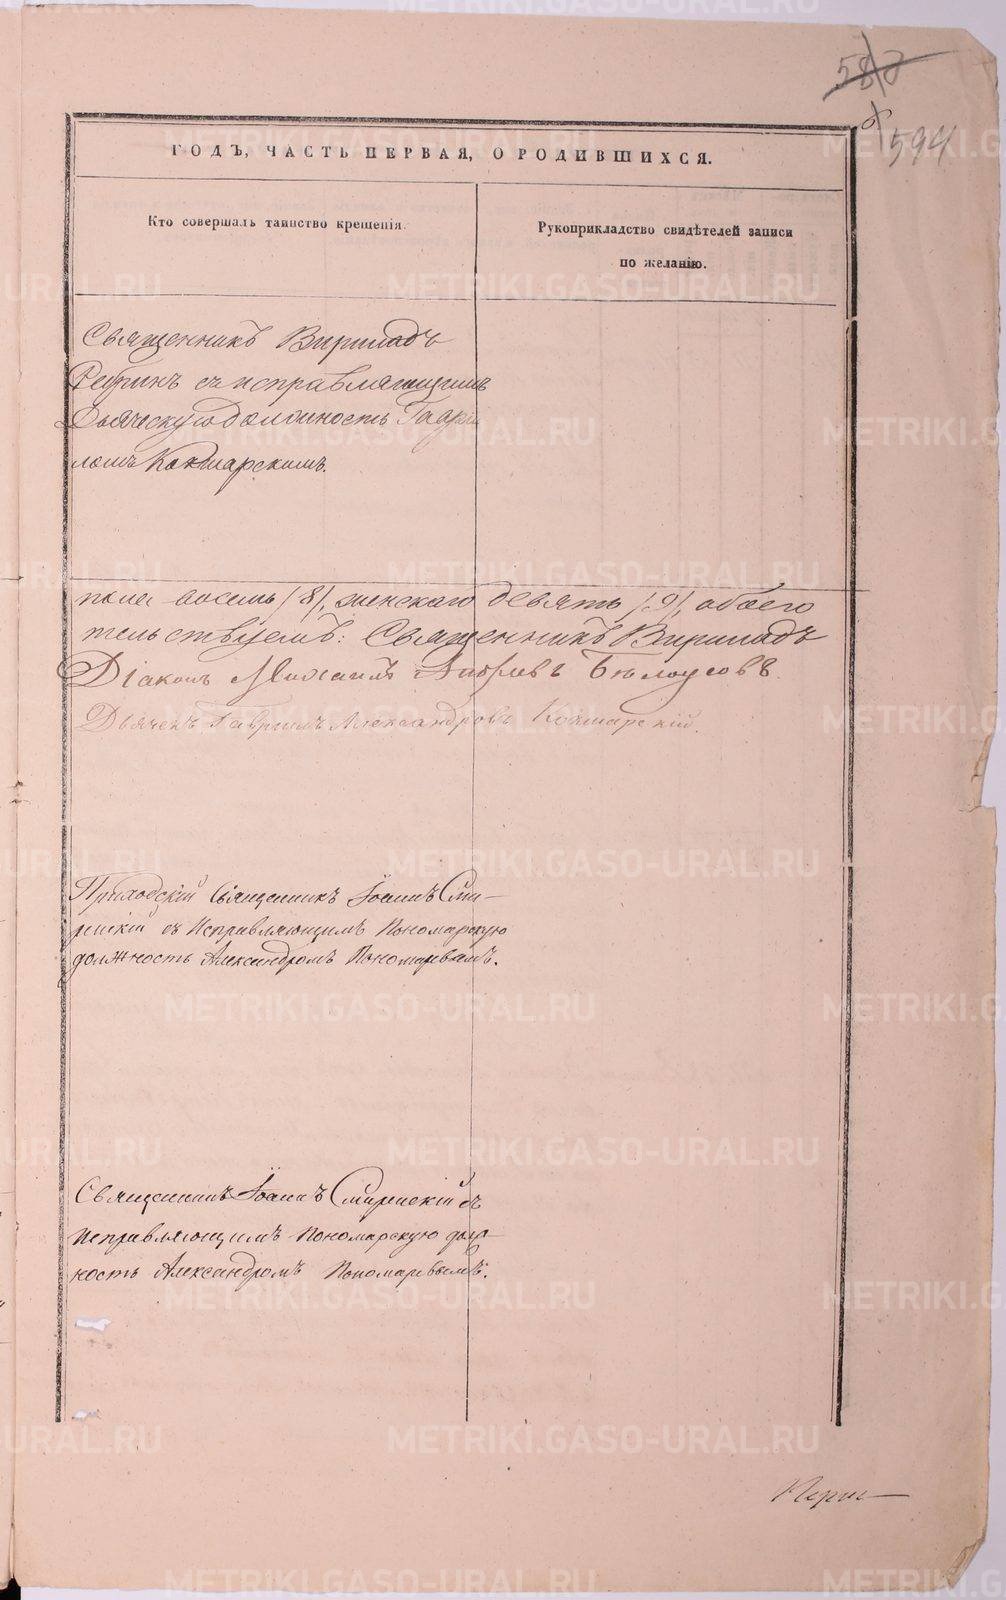 588
594
ГОДЪ, ЧАСТЬ ПЕРВАЯ, О РОДИВШИХСЯ.
Кто совершалъ таинство крещенія.
Рукоприкладство свидѣтелей записи
по желанію.
Священникъ Вириладъ
Репинъ съ исправляющимъ
Дьяческую должность Гаврі
ломъ Кокшарскимъ.
пола восемь /8/, женскаго девять /9/, обоего
тельствуемъ: Священникъ Вириладъ
Діаконъ Михаилъ Бѣлоусовъ
Дьячекъ Гавріилъ Александровъ Кокшарскій.
Приходскій Священникъ Іоаннъ Сми-
рнскій съ Исправляющимъ Пономарскую
должность Александромъ Пономаревымъ.
Священникъ Іоаннъ Смирнскій съ
исправляющимъ пономарскую долж-
ность Александромъ Пономаревымъ.
METRIKI.GASO-URAL.RU